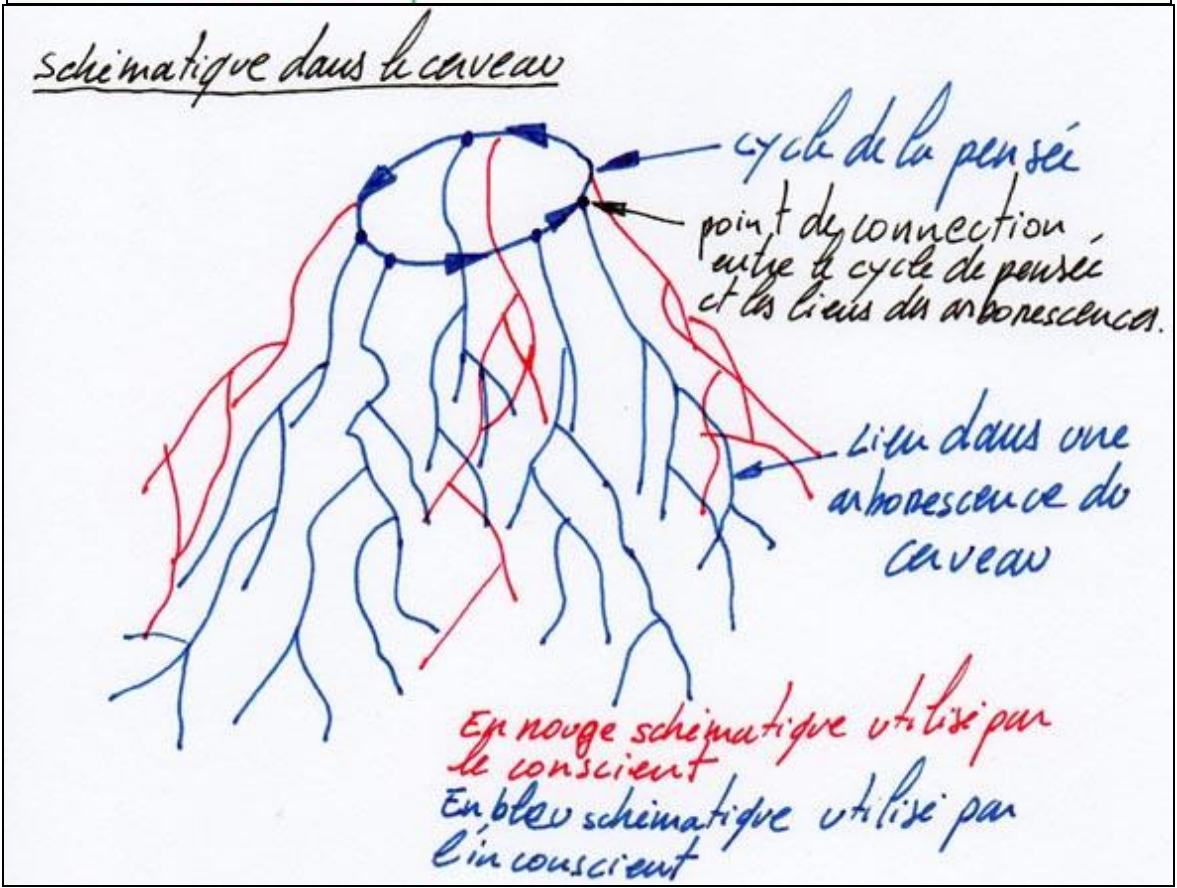 schématique dans le cerveau
cycle de la pensée
point de connection
entre le cycle de pensée
et les liens des arborescences.
Lien dans une
arborescence du
cerveau
En rouge schématique utilisé par
le conscient
En bleu schématique utilisé par
l'inconscient